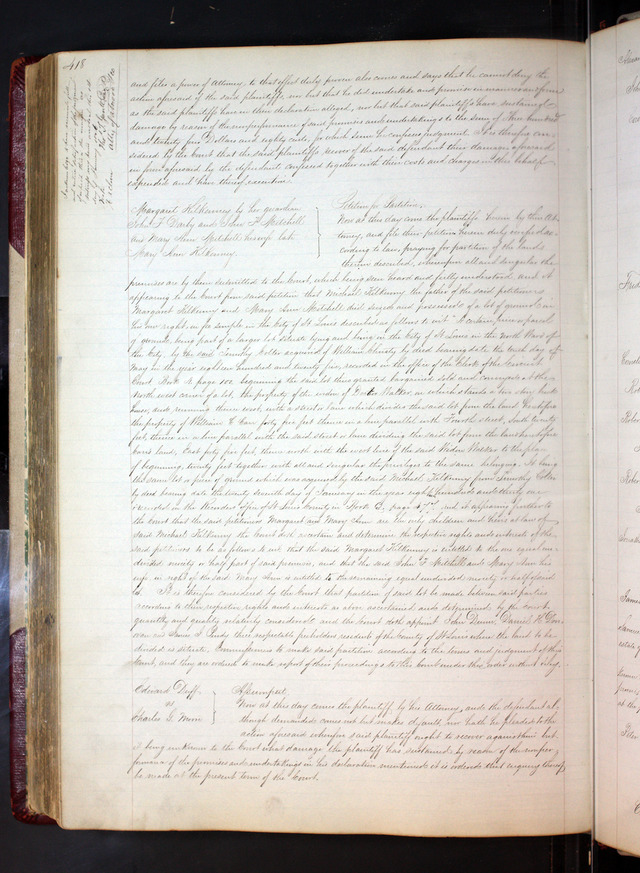 418
and files a power of Attorney to that effect duly proven also comes and says that he cannot deny the
action aforesaid of the said plaintiffs, nor but that he did undertake and promise in manner and form
as the said plaintiffs have in their declaration alleged, nor but that said plaintiffs have sustained
damage by reason of the nonperformance of said promises and undertakings to the sum of Three hundred
and twenty five Dollars and eighty cents, for which sum he confesses judgment. It is therefore con-
sidered by the Court that the said plaintiffs recover of the said defendant their damages aforesaid
in form aforesaid by the defendant confessed together with their costs and charges in this behalf
expended and have thereof execution.
Margaret Kilkenny by her guardian
John F. Darby and John F. Mitchell
and Mary Ann Mitchell his wife late
Mary Ann Kilkenny.
Petition for Partition.
Now at this day come the plaintiffs herein by their At-
torney, and file their petition herein duly verified ac-
cording to law, praying for partition of the lands
therein described, whereupon all and singular the
premises are by them submitted to the Court, which being seen heard and fully understood and it
appearing to the Court from said petition that Michael Kilkenny the father of the said petitioners
Margaret Kilkenny and Mary Ann Mitchell died seized and possessed of a lot of ground in
his own right, in fee simple in the City of St Louis described as follows to wit "A certain, piece or parcel
of ground, being part of a larger lot situate lying and being in the City of St Louis in the North Ward of
the City, by the said Timothy Coller acquired of William Christy by deed bearing date the tenth day of
May in the year eighteen hundred and twenty five, recorded in the office of the Clerk of the Circuit
Court Book page 102 beginning the said lot thus granted bargained sold and conveyed at the
North west corner of a lot, the property of the widow of Walker on which stands a two story brick
house, and running thence west, with a street or lane which divides the said lot from the land heretofore
the property of William C. Carr forty five feet thence in a line parallel with Fourth street, South twenty
feet, thence in a line parallel with the said street or lane dividing the said lot from the land heretofore
Carrs land, East forty five feet, thence north with the west line of the said Widow Walker to the place
of beginning, twenty feet together with all and singular the privileges to the same belonging. It being
the same lot or piece of ground which was acquired by the said Michael Kilkenny from Timothy Coller
by deed bearing date the twenty seventh day of January in the year eighteen hundred and thirty one
recorded in the Recorders Office of St Louis County in Book Q, page 47" and it appearing further to
the Court that the said petitioners Margaret and Mary Ann are the only children and heirs at law of
said Michael Kilkenny the Court did ascertain and determine the respective rights and interests of the
said petitioners to be as follows to wit that the said Margaret Kilkenny is entitled to the one equal un-
divided moiety or half part of said premises, and that the said John F Mitchell and Mary Ann his
wife in right of the said Mary Ann is entitled to the remaining equal undivided moiety or half of said
lot. It is therefore considered by the Court that partition of said lot be made between said parties
according to their respective rights and interests as above ascertained and determined by the court,
quantity and quality relatively considered and the Court doth appoint John Dunn, Daniel H. Don-
ovan and James S. three respectable freeholders residents of the County of St Louis where the land to be
divided is situate, Commissioners to make said partition according to the tenor and judgment of this
Court, and they are ordered to make report of their proceedings to this Court under this order without delay.
Edward Duff.
vs
Charles G.
Assumpsit.
Now at this day comes the plaintiff by his Attorney, and the defendant al-
though demanded comes not but makes default, nor hath he pleaded to the
action aforesaid wherefore said plaintiff ought to recover against him but
it being unknown to the Court what damage the plaintiff has sustained by reason of the nonper-
formance of the promises and undertakings in his declaration mentioned it is ordered that inquiry thereof
be made at the present term of the Court.